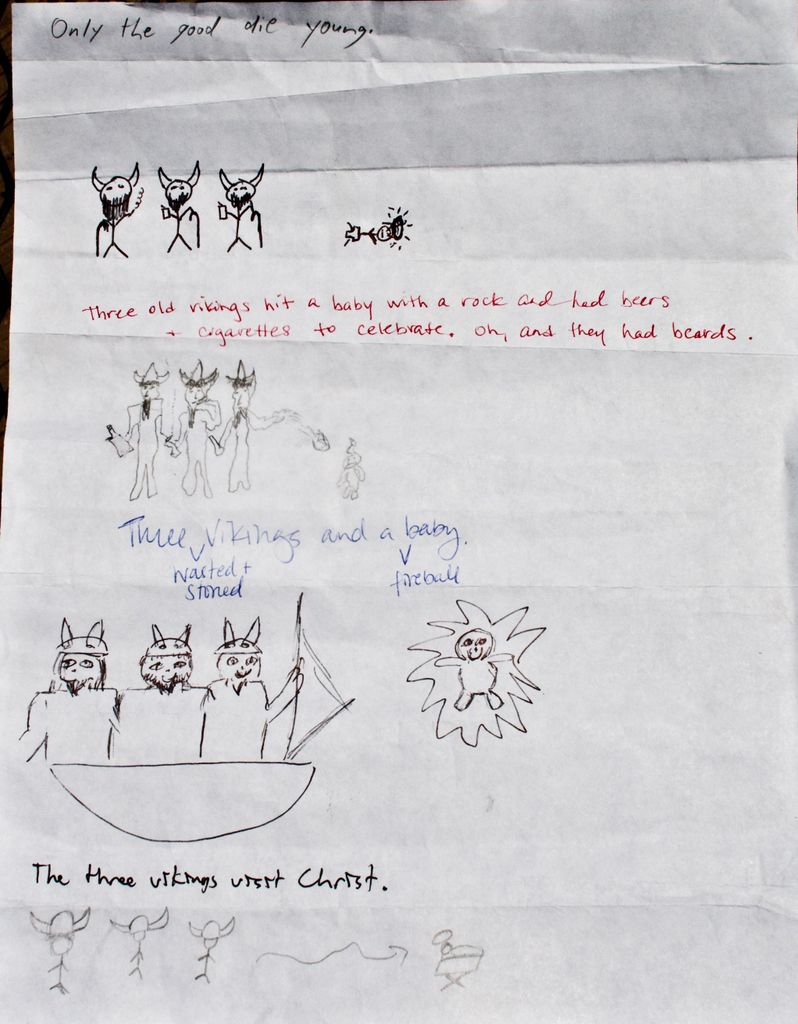 Only the good die young.
Three old vikings hit a baby with a rock and had beers
+ cigarettes to celebrate. Oh, and they had beards.
Three vikings and a baby.
wasted + fireball
stoned
The three vikings visit Christ.